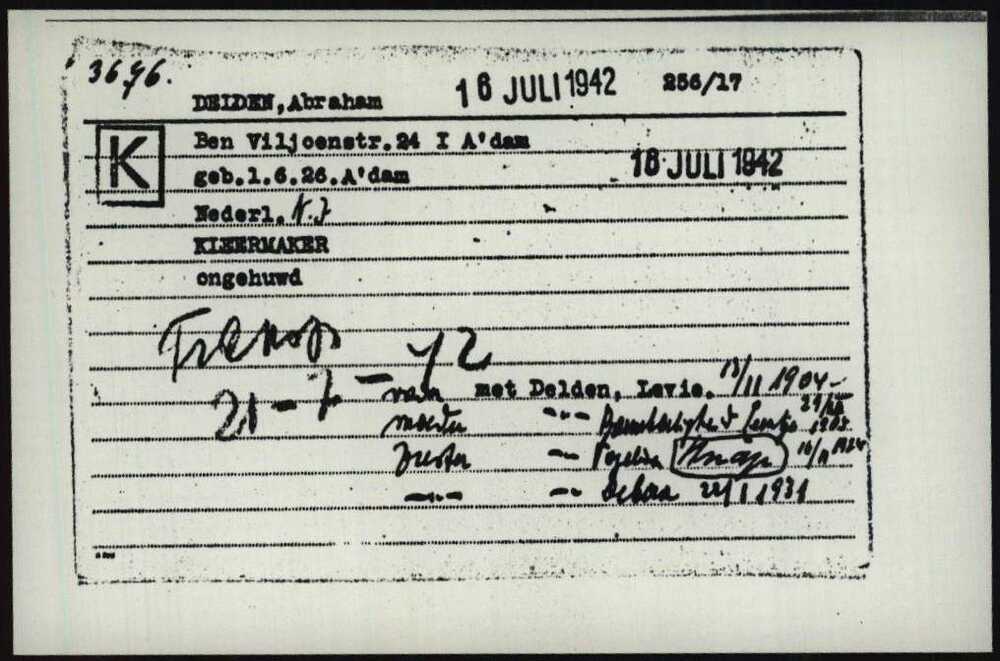 3696.
DELDEN, Abraham 16 JULI 1942 256/17
K
Ben Viljoenstr.24 I A'dam
geb.1.6.26.A'dam 16 JULI 1942
Nederl. N.J
KLEERMAKER
ongehuwd
Transp
21-7-42
met Delden, Levie. 13/11 1904
moeder -"-
zuster -"- 1924
-"- -"- Debora 22/1 1931